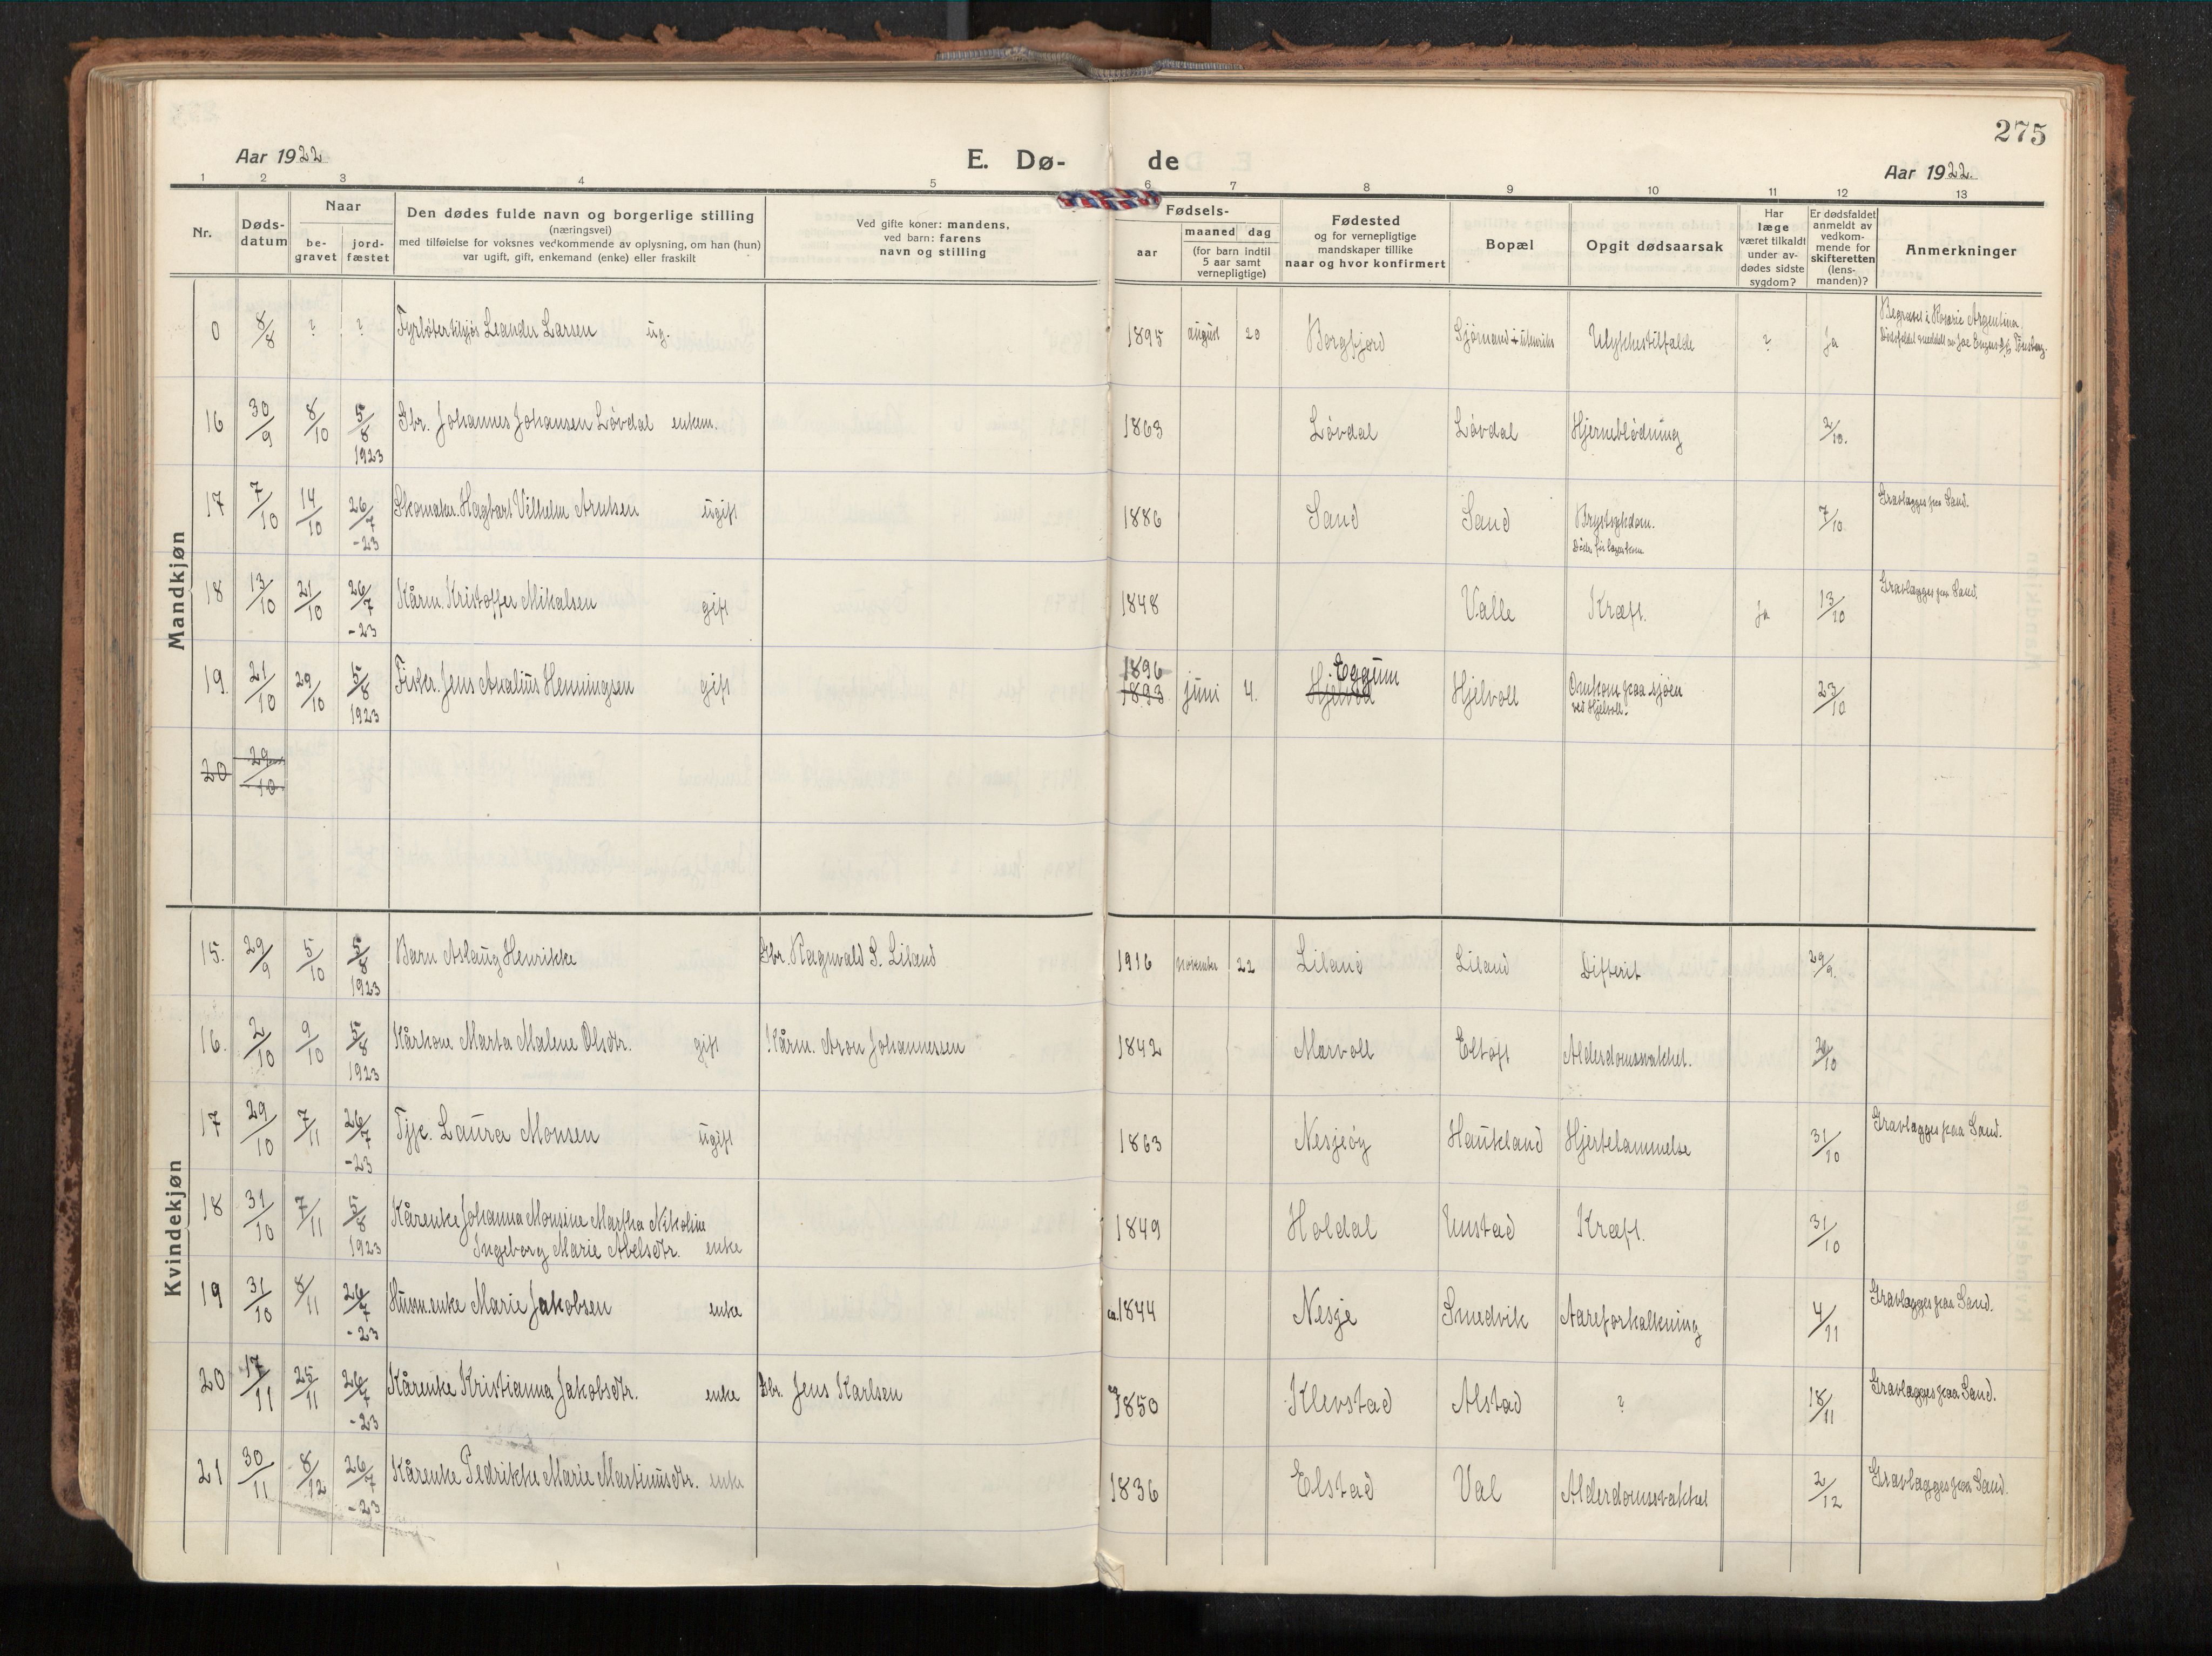 275
Aar 1922
E. Dø-
de
Aar 1922.
1 2 3 4 5 6 7 8 9 10 11 12 13
Nr.
Døds-
datum
Naar
be-
gravet
jord-
fæstet
Den dødes fulde navn og borgerlige stilling
(næringsvei)
med tilføielse for voksnes vedkommende av oplysning, om han (hun)
var ugift, gift, enkemand (enke) eller fraskilt
Ved gifte koner: mandens,
ved barn: farens
navn og stilling
Fødsels-
aar
maaned dag
(for barn indtil
5 aar samt
vernepligtige)
Fødested
og for vernepligtige
mandskaper tillike
naar og hvor konfirmert
Bopæl
Opgit dødsaarsak
Har
læge
været tilkaldt
under av-
dødes sidste
sygdom?
Er dødsfaldet
anmeldt av
vedkom-
mende for
skifteretten
(lens-
manden)?
Anmerkninger
Mandkjøn
0 8/8 ? ? Leander Larsen ug. 1895 august 20 Borgfjord Ulykkestilfælde ? Ja Begravet i Rosario Argentina.
16 30/9 8/10 5/8 1923 Gbr. Johannes Johansen Løvdal enkem. 1863 Løvdal Løvdal Hjerneblødning 2/10.
17 7/10 14/10 26/7 -23 Skomaker. Hagbart Vilhelm Arntsen ugift 1886 Sand Sand Brystsykdom. 7/10 Gravlægges paa Sand.
18 13/10 21/10 26/7 -23 Kårm. Kristoffer Mikalsen gift 1848 Valle Kræft. Ja 13/10 Gravlægges paa Sand.
19. 21/10 29/10 5/8 1923 Fisker. Jens Analius Henningsen gift 1896 1893 juni 4. Eggum Hjelvoll Omkom paa sjøen
ved Hjelvoll. 23/10
20 29/10
Kvindekjøn
15. 29/9 5/10 5/8 1923 Barn Aslaug Henrikke Gbr. Ragnvald S. Liland 1916 November 22 Liland Liland Difterit 29/9.
16. 2/10 9/10 5/8 1923 Kårkone Marta Malene Olsdtr. gift Kårm. Aron Johannessen 1842 Mærvoll Eltoft Alderdomssvakhet.
17 29/10 7/11 26/7 -23 Tjje. Laura Monsen ugift 1863 Nesjeøy Haukland Hjertelammelse 31/10 Gravlægges paa Sand.
18 31/10 7/11 5/8 1923 Kårenke Johanna Monsine Martha Nikoline
Ingeborg Marie Abelsdtr. enke 1849 Holdal Unstad Kræft. 31/10
19 31/10 8/11 26/7 -23 Husm.enke Marie Jakobsen enke ca. 1844 Nesje Smedvik Aareforkalkning 4/11 Gravlægges paa Sand.
20 17/11 25/11 26/7 -23 Kårenke Kristianna Jakobsdtr. enke Gbr. Jens Karlsen 1850 Klevstad Alstad ? 18/11 Gravlægges paa Sand.
21 30/11 8/12 26/7 -23 Kårenke Pedrikke Marie Martinusdtr. enke 1836 Elstad Val Alderdomssvakhet 2/12 Gravlægges paa Sand.